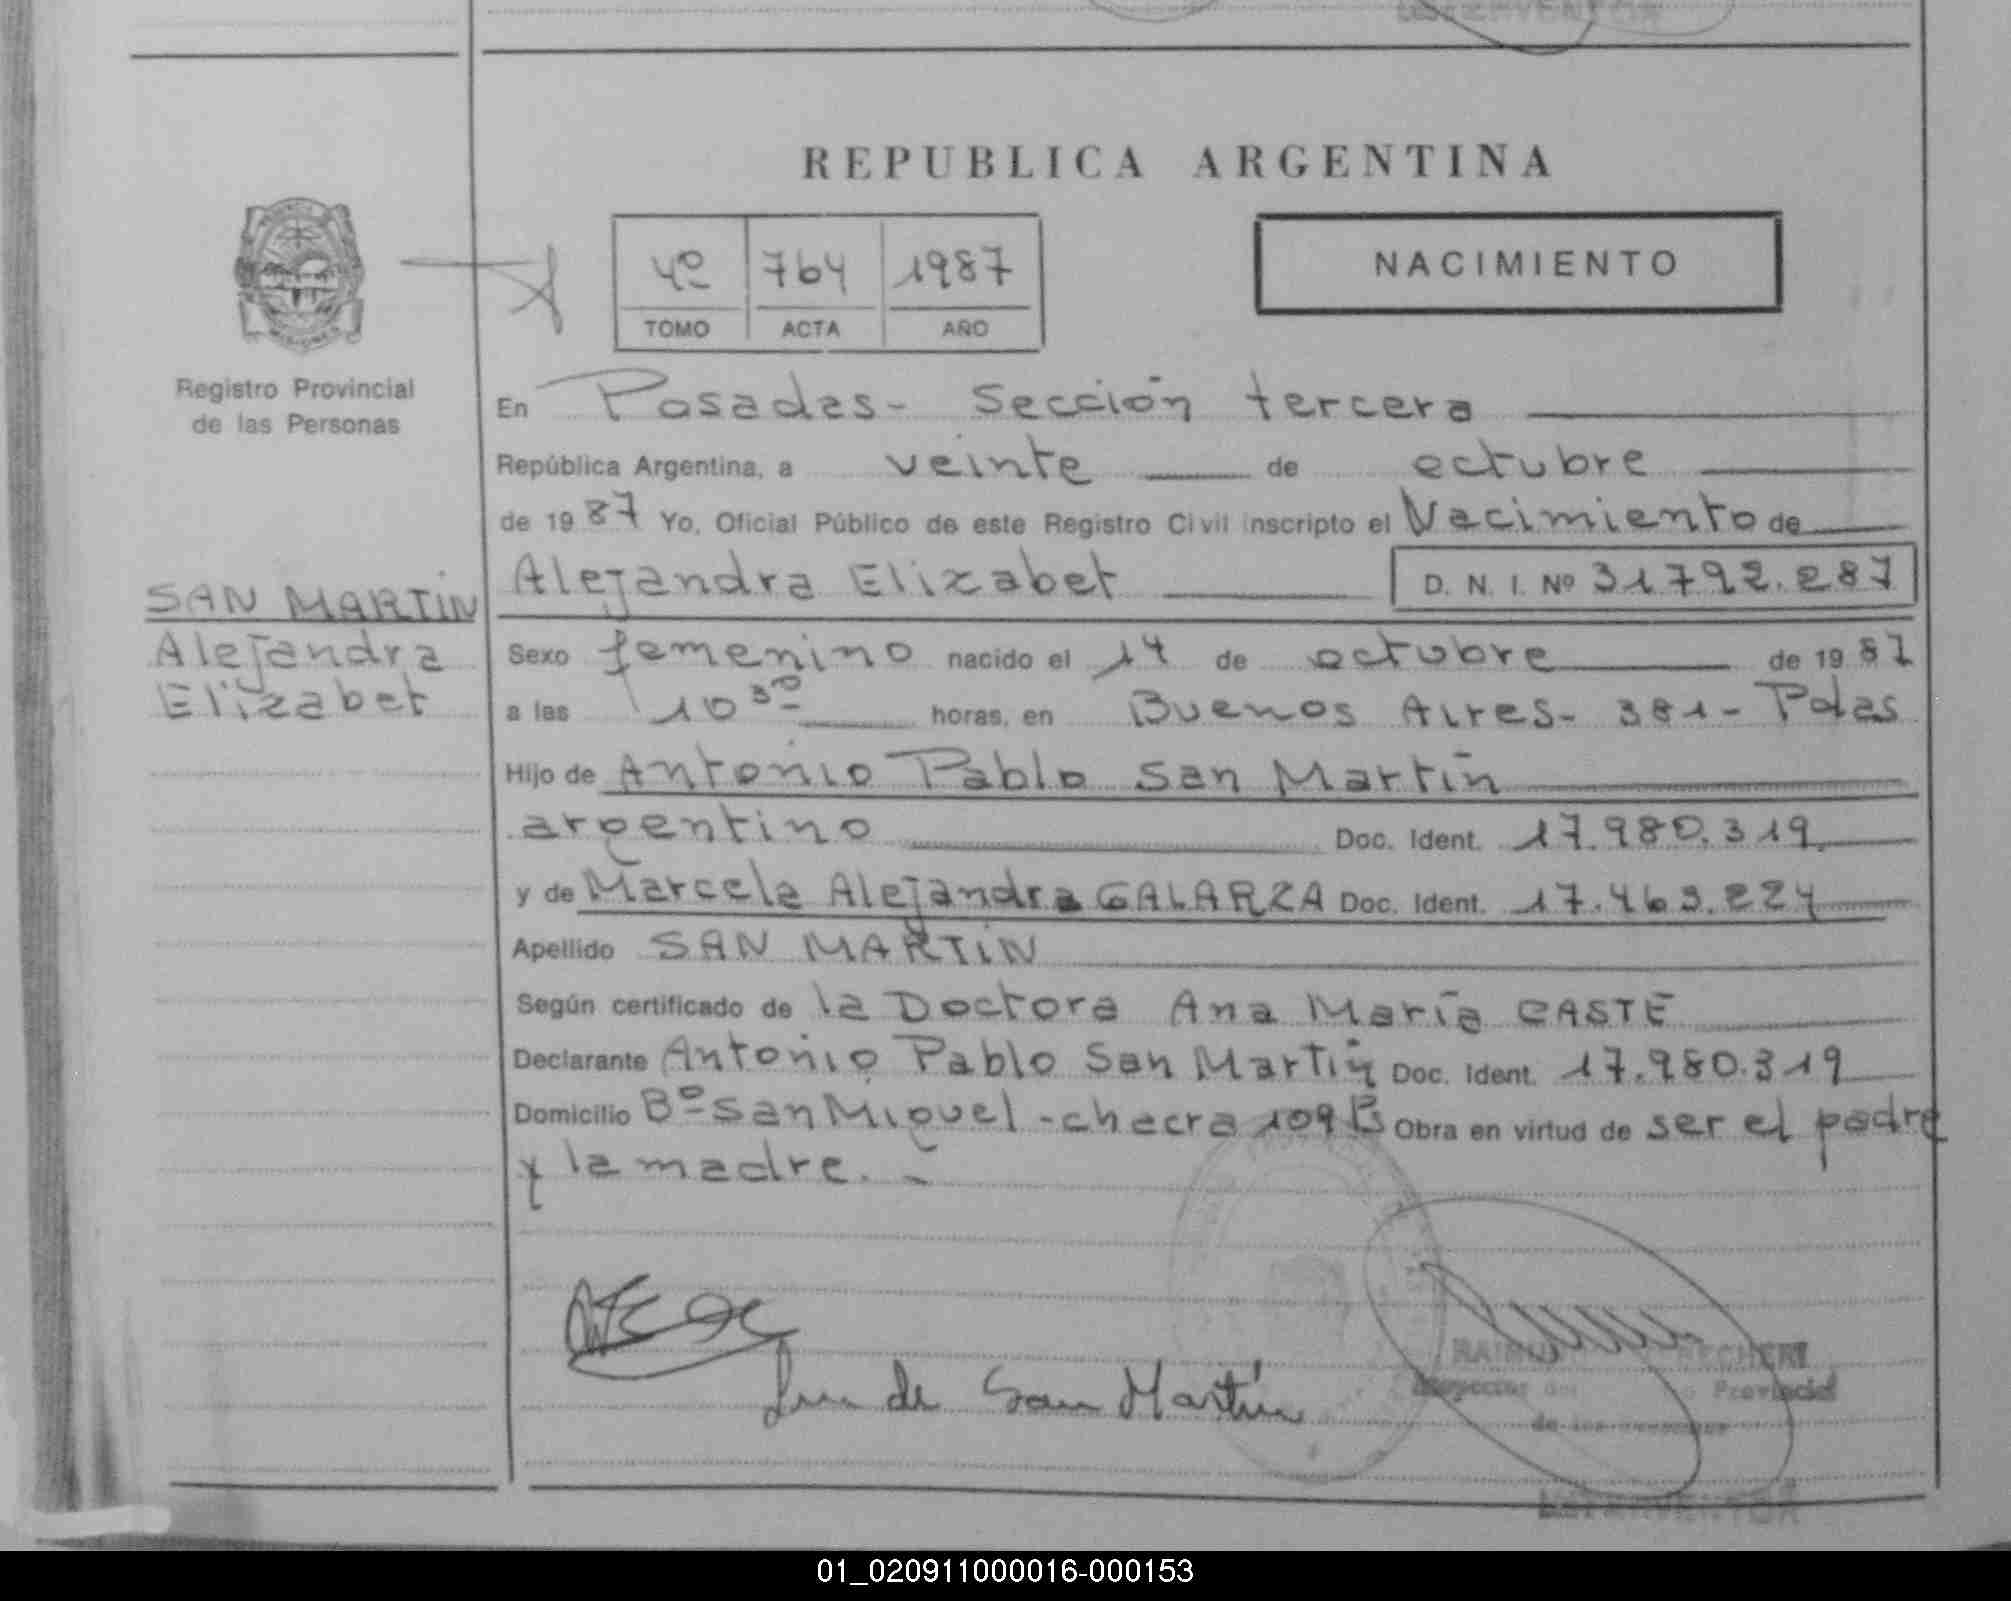 REPUBLICA ARGENTINA
4º 764 1987
TOMO ACTA AÑO
NACIMIENTO
MISIONES
Registro Provincial
de las Personas
SAN MARTIN
Alejandra
Elizabet
En Posadas- Sección tercera
República Argentina, a veinte de octubre
de 1987 Yo, Oficial Público de este Registro Civil inscripto el Nacimiento de
Alejandra Elizabet D. N. I. Nº 31.792.287
Sexo femenino nacido el 14 de octubre de 1987
a las 10 30 horas, en Buenos Aires- 381- Pdas
Hijo de Antonio Pablo San Martín
argentino Doc. Ident. 17.980.319.
y de Marcela Alejandra GALARZA Doc. Ident. 17.463.224
Apellido SAN MARTIN
Según certificado de la Doctora Ana María CASTE
Declarante Antonio Pablo San Martín Doc. Ident. 17.980.319
Domicilio Bº San Miguel - chacra 109 B Obra en virtud de ser el padre
y la madre. -
de San Martín
Provincial
de las
01_020911000016-000153